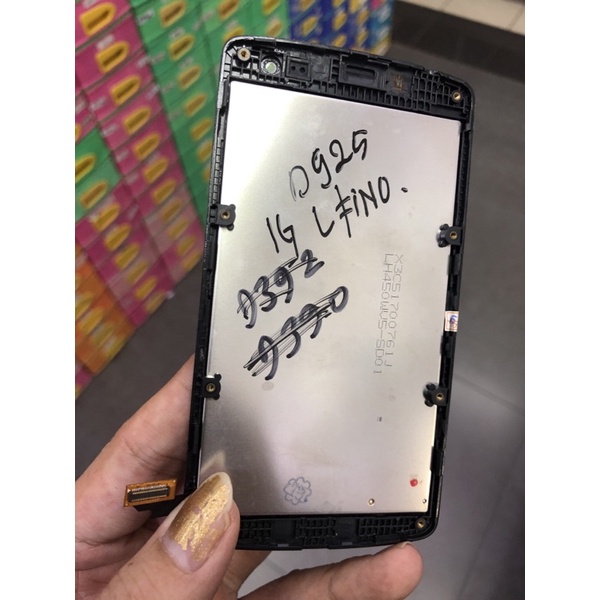 D925
1G L FiNO.
D392
D390
X3C51700761J
LH450WV5-SD01